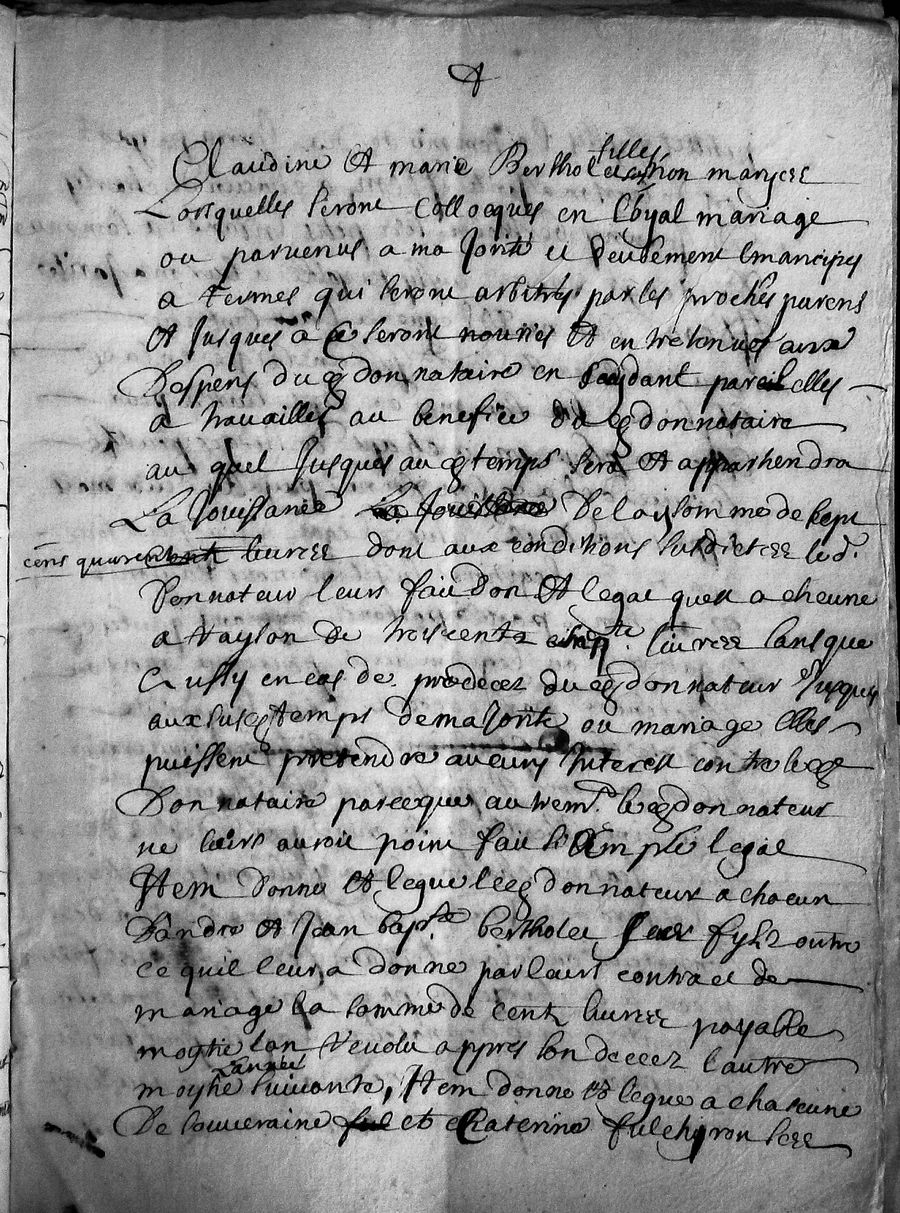 A
Claudine et marie Berthollet filles non maryees
Lorsquelles seront collocquees en loyal mariage
ou parvenus a majorité et deubement emancipes
a termes qui seront arbitrés par les proches parens
et jusques a ce seront nouries et entretenues aux
Despens dud donnataire en pareil elles
a travailler au benefice dud donnataire
au quel jusques aud temps sera et appartiendra
La Jouissance De la somme de sept
cens quarente livres dont aux conditions susdictes led.
Donnateur leurs fait don et legat quest a checune
a Rayson de troiscents livres sans que
aussy en cas de predecez dud donnateur Jusques
aux susd temps de majorité ou mariage elles
puissent pretendre aucuns Interest contre led
Donnataire parceque autremt. led donnateur
ne leurs auroit point fait si Ample legat
Item donne et legue led donnateur a chacun
Dandre et Jean bapte. bertholet ses fylz outre
ce quil leur a donne par leurs contract de
mariage la somme de cent livres payable
moytie lan revolu appres son decez lautre
moytie lannee suivante, Item donne et legue a chascune
De souveraine et Caterine fulchyron ses